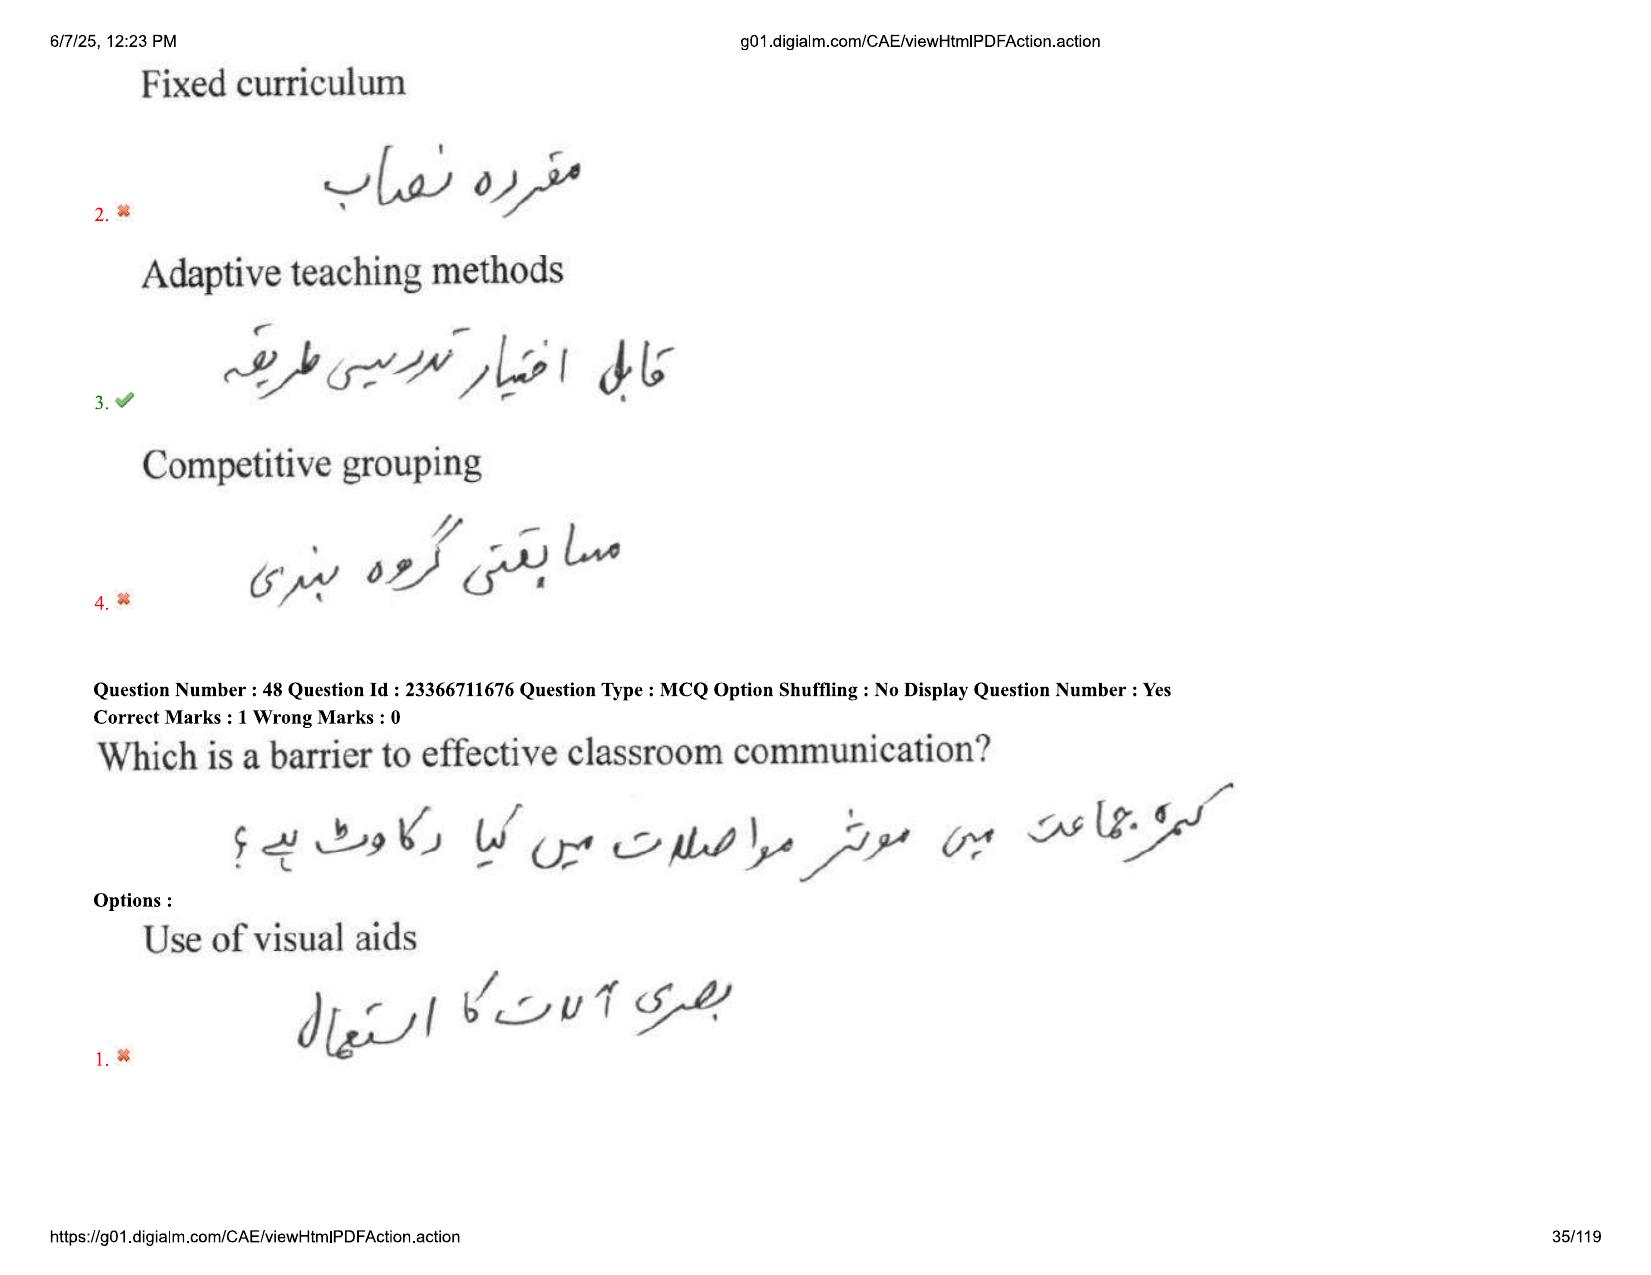 6/7/25, 12:23 PM g01.digialm.com/CAE/viewHtmlPDFAction.action
Fixed curriculum
مقررہ نصاب
2.
Adaptive teaching methods
قابل اختیار تدریسی طریقہ
3.
Competitive grouping
مسابقتی گروہ بندی
4.
Question Number : 48 Question Id : 23366711676 Question Type : MCQ Option Shuffling : No Display Question Number : Yes
Correct Marks : 1 Wrong Marks : 0
Which is a barrier to effective classroom communication?
کمرہ جماعت میں موثر مواصلات میں کیا رکاوٹ ہے؟
Options :
Use of visual aids
بصری آلات کا استعمال
1.
https://g01.digialm.com/CAE/viewHtmlPDFAction.action 35/119